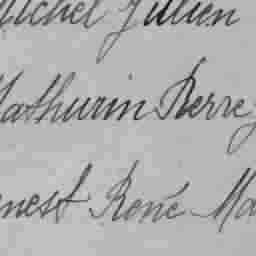 Michel Jullien
Mathurin Pierre
Ernest René Ma